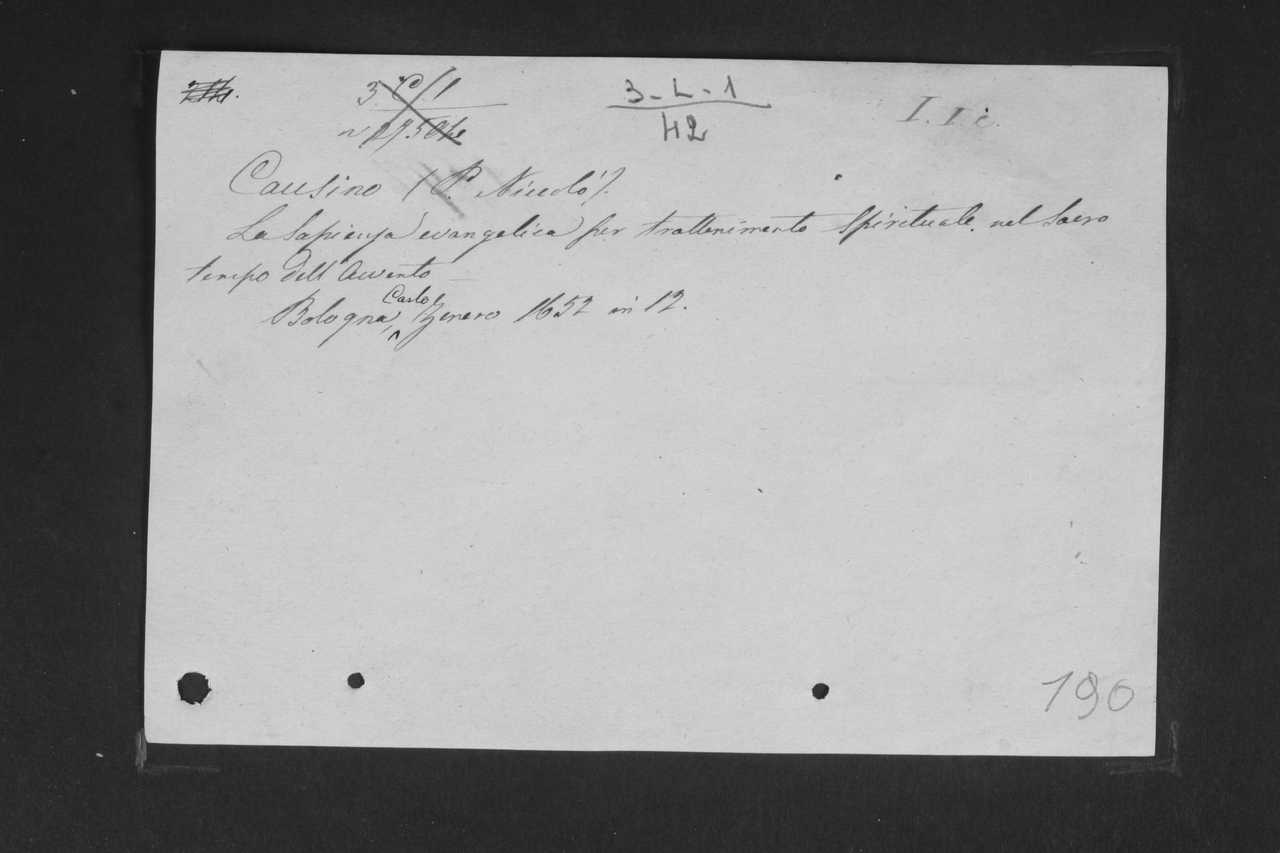 3-L-1
42
I. I c.
Causino (P. Niccolò).
La Sapienza evangelica per trattenimento Spirituale nel Sacro
tempo dell'Avvento
Bologna, Carlo Zenero 1652 in 12.
190